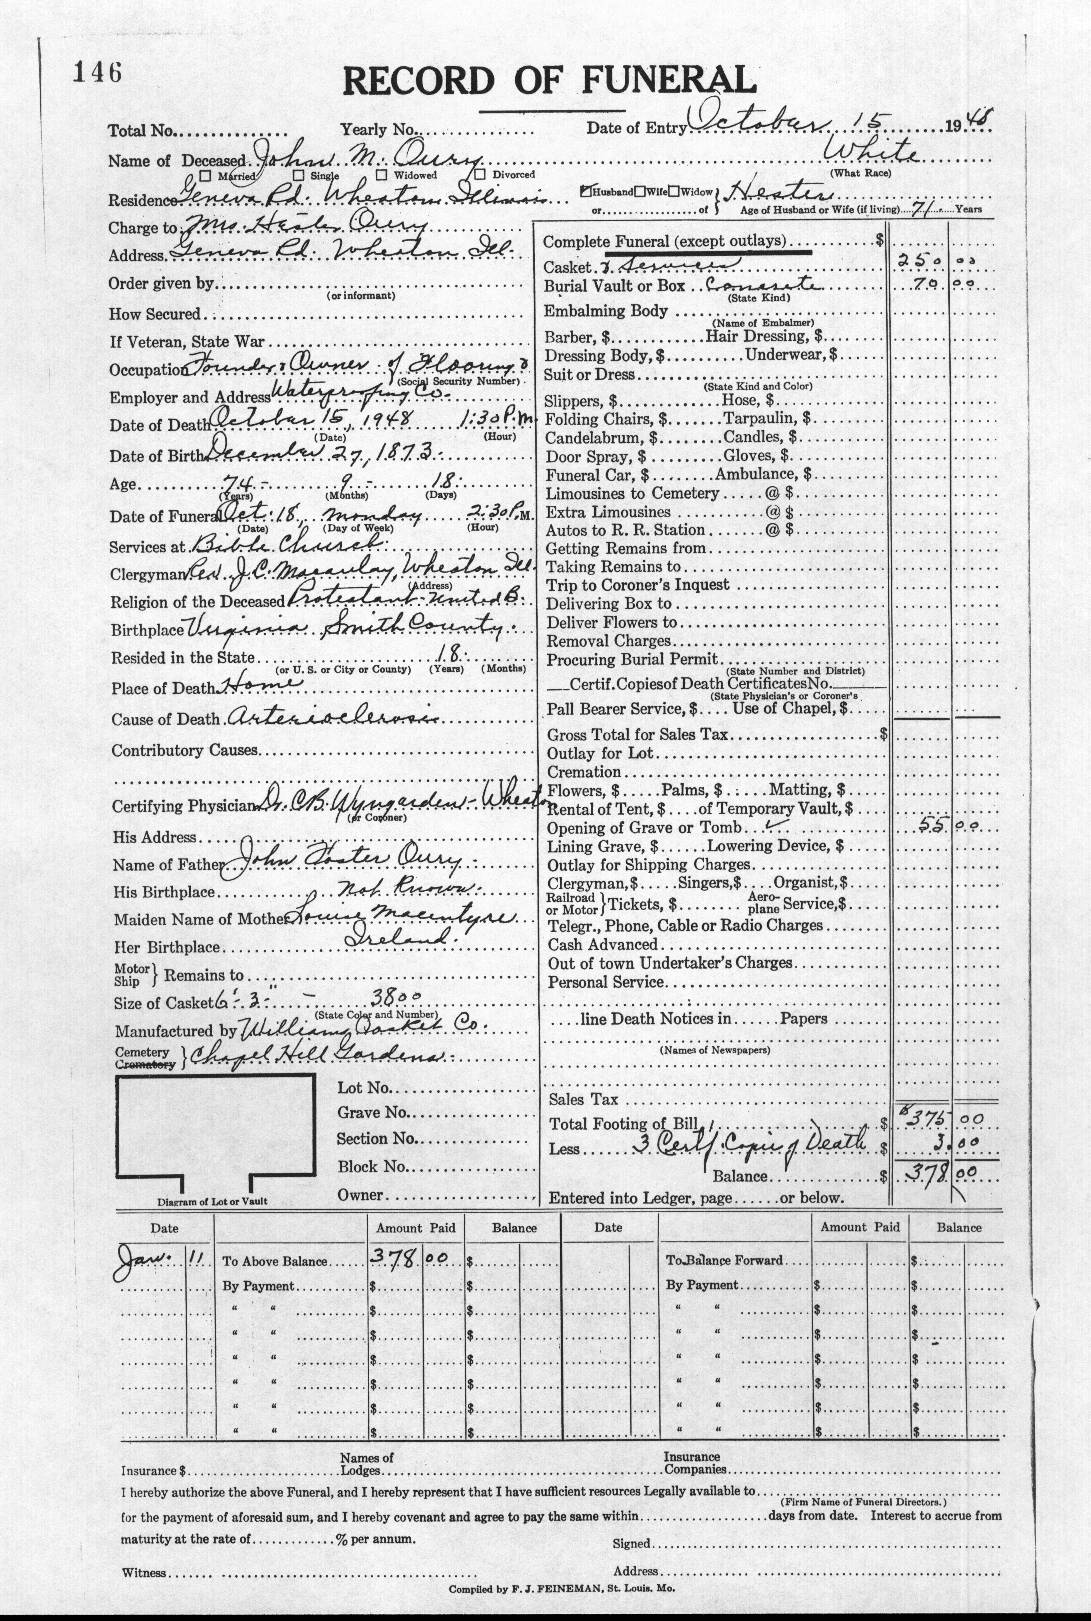 146
RECORD OF FUNERAL
Total No. Yearly No. Date of Entry October 15 1948
Name of Deceased John M. Oury White
Married Single Widowed Divorced (What Race)
Residence Geneva Rd. Wheaton, Illinois Husband Wife Widow } Hester
or of Age of Husband or Wife (if living) 71 Years
Charge to Mrs. Hester Oury
Address Geneva Rd. Wheaton, Ill.
Order given by
(or informant)
How Secured
If Veteran, State War
Occupation Founder & Owner of Flooring &
(Social Security Number)
Employer and Address Waterproofing Co.
Date of Death October 15, 1948 1:30 P.M.
(Date) (Hour)
Date of Birth December 27, 1873
Age 74 - 9 - 18
(Years) (Months) (Days)
Date of Funeral Oct. 18, Monday 2:30 P.M.
(Date) (Day of Week) (Hour)
Services at Bible Church
Clergyman Rev. J.C. Macaulay, Wheaton Ill.
(Address)
Religion of the Deceased Protestant - United B.
Birthplace Virginia, Smith County.
Resided in the State 18
(or U. S. or City or County) (Years) (Months)
Place of Death Home
Cause of Death Arteriosclerosis
Contributory Causes
Certifying Physician Dr. C.B. Wyngarden - Wheaton
(or Coroner)
His Address
Name of Father John Foster Oury
His Birthplace Not Known
Maiden Name of Mother Louise Macentyre
Her Birthplace Ireland.
Motor Ship } Remains to
Size of Casket 6' - 3" - 3800
(State Color and Number)
Manufactured by Williams Casket Co.
Cemetery Crematory } Chapel Hill Gardens
Lot No.
Grave No.
Section No.
Block No.
Owner
Diagram of Lot or Vault
Complete Funeral (except outlays) $
Casket & Services 250 00
Burial Vault or Box Concrete 70 00
(State Kind)
Embalming Body
(Name of Embalmer)
Barber, $ Hair Dressing, $
Dressing Body, $ Underwear, $
Suit or Dress
(State Kind and Color)
Slippers, $ Hose, $
Folding Chairs, $ Tarpaulin, $
Candelabrum, $ Candles, $
Door Spray, $ Gloves, $
Funeral Car, $ Ambulance, $
Limousines to Cemetery @ $
Extra Limousines @ $
Autos to R. R. Station @ $
Getting Remains from
Taking Remains to
Trip to Coroner's Inquest
Delivering Box to
Deliver Flowers to
Removal Charges
Procuring Burial Permit
(State Number and District)
Certif. Copies of Death Certificates No.
(State Physician's or Coroner's
Pall Bearer Service, $ Use of Chapel, $
Gross Total for Sales Tax $
Outlay for Lot
Cremation
Flowers, $ Palms, $ Matting, $
Rental of Tent, $ of Temporary Vault, $
Opening of Grave or Tomb ✓ 55 00
Lining Grave, $ Lowering Device, $
Outlay for Shipping Charges
Clergyman, $ Singers, $ Organist, $
Railroad or Motor } Tickets, $ Aero-plane Service, $
Telegr., Phone, Cable or Radio Charges
Cash Advanced
Out of town Undertaker's Charges
Personal Service
line Death Notices in Papers
(Names of Newspapers)
Sales Tax
Total Footing of Bill $ 375 00
Less 3 Certf. Copies of Death $ 3.00
Balance $ 378 00
Entered into Ledger, page or below.
Date Amount Paid Balance Date Amount Paid Balance
Jan. 11 To Above Balance 378 00 $ To Balance Forward $
By Payment $ $ By Payment $ $
“ “ $ $ “ “ $ $
“ “ $ $ “ “ $ $
“ “ $ $ “ “ $ $
“ “ $ $ “ “ $ $
“ “ $ $ “ “ $ $
“ “ $ $ “ “ $ $
Insurance $ Names of Lodges Insurance Companies
I hereby authorize the above Funeral, and I hereby represent that I have sufficient resources Legally available to
(Firm Name of Funeral Directors.)
for the payment of aforesaid sum, and I hereby covenant and agree to pay the same within days from date. Interest to accrue from
maturity at the rate of % per annum.
Signed
Witness Address
Compiled by F. J. FEINEMAN, St. Louis. Mo.